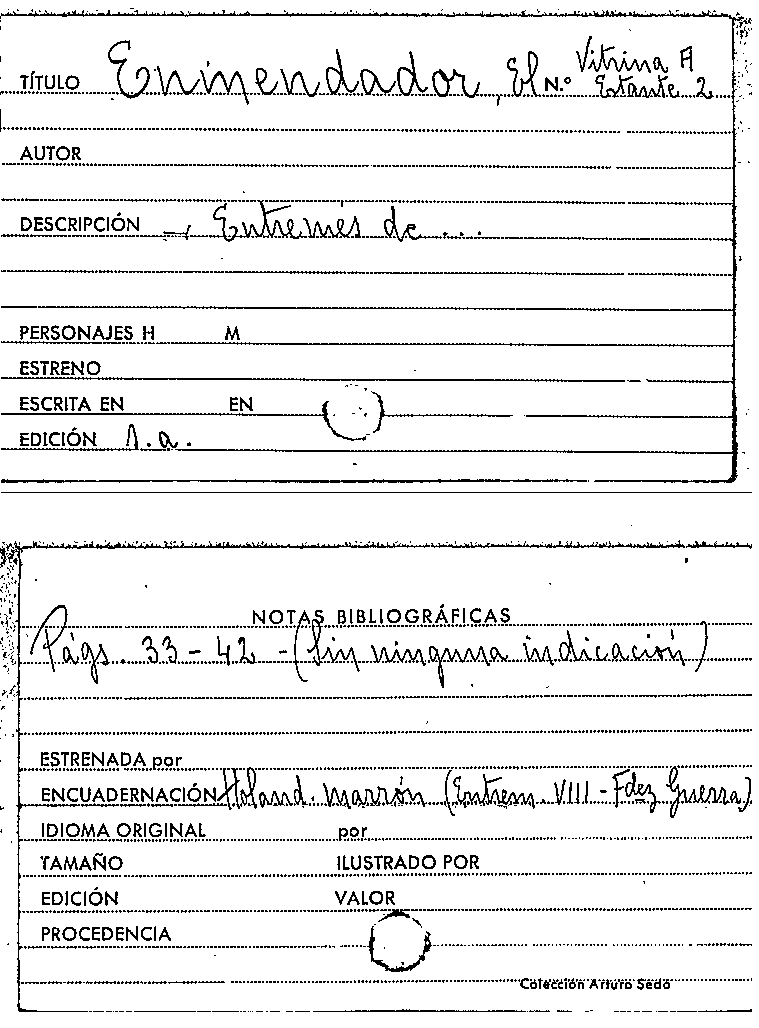 TÍTULO Enmendador, El N.º Vitrina A
Estante 2
AUTOR
DESCRIPCIÓN —, Entremés de ...
PERSONAJES H M
ESTRENO
ESCRITA EN EN
EDICIÓN s.a.
NOTAS BIBLIOGRÁFICAS
Págs. 33 - 42 - (Sin ninguna indicación)
ESTRENADA por
ENCUADERNACIÓN Holand. marrón (Entrem. VIII - Fdez Guerra)
IDIOMA ORIGINAL por
TAMAÑO ILUSTRADO POR
EDICIÓN VALOR
PROCEDENCIA
Colección Arturo Sedó